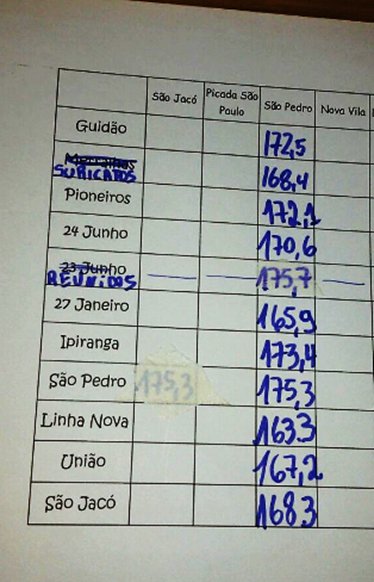 São Jacó Picada São Paulo São Pedro Nova Vila
Guidão 172,5
SURICATOS 168,4
Pioneiros 172,1
24 Junho 170,6
23 Junho
REUNIDOS 175,7
27 Janeiro 165,9
Ipiranga 173,4
São Pedro 175,3 175,3
Linha Nova 163.3
União 167,2
São Jacó 168.3